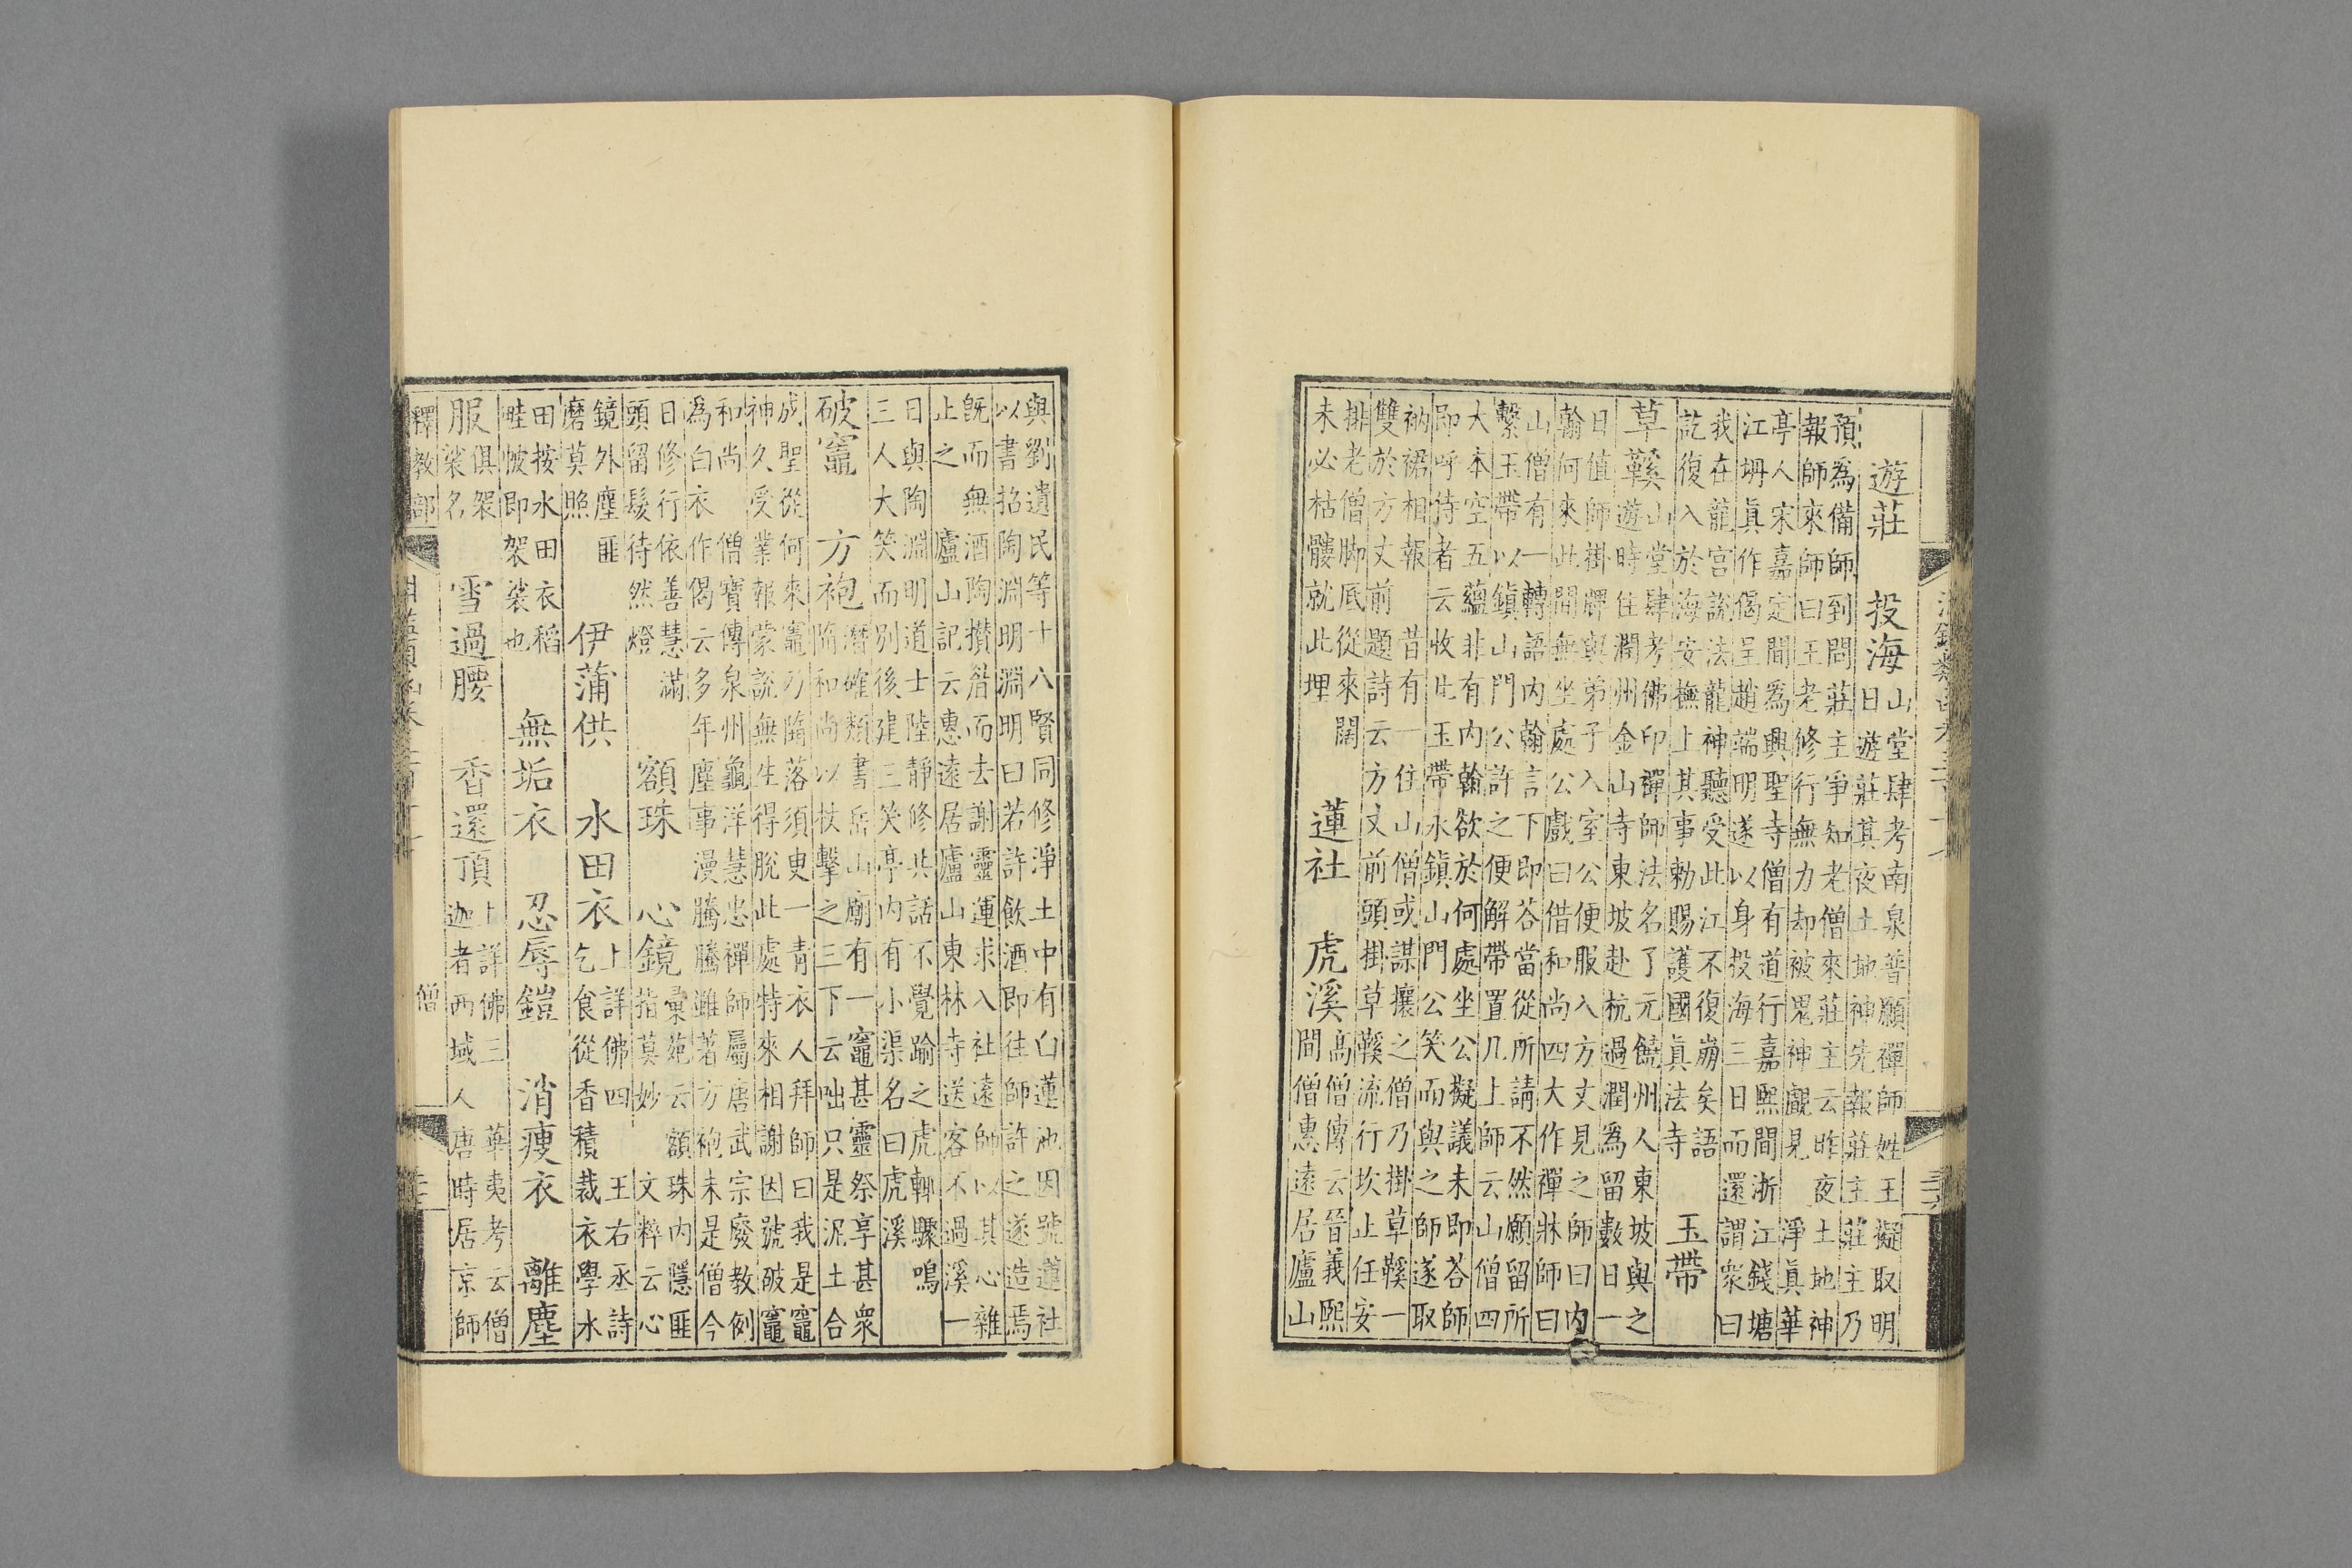 遊莊　投海
山堂肆考南泉普願禪師姓王擬取明
日遊莊其夜土地神先報莊主莊主乃
預爲備師到問莊主爭知老僧來莊主云昨夜土地神
報師來師曰王老修行無力却被鬼神覷見　淨眞華
亭人宋嘉定間爲興聖寺僧有道行嘉熙間浙江錢塘
江坍眞作偈呈趙端明遂以身投海三日而還謂衆曰
我在龍宮說法龍神聽受此江不復崩矣語
訖復入於海安撫上其事勅賜護國眞法寺
玉帶
草鞵
山堂肆考佛印禪師法名了元饒州人東坡與之
遊時住潤州金山寺東坡赴杭過潤爲留數日一
日值師掛牌與弟子入室公便服入方丈見之師曰内
翰何來此間無坐處公戲曰借和尚四大作禪牀師曰
山僧有一轉語内翰言下即荅當從所請不然願留所
繫玉帶以鎮山門公許之便解帶置几上師云山僧四
大本空五蘊非有内翰欲於何處坐公擬議未即荅師
即呼侍者云收此玉帶永鎮山門公笑而與之師遂取
衲裙相報　昔有一住山僧或謀攘之僧乃掛草鞵一
雙於方丈前題詩云方丈前頭掛草鞵流行坎止任安
排老僧脚底從來闊
未必枯髏就此埋
蓮社　虎溪
高僧傳云晉義熙
間僧惠遠居廬山
與劉遺民等十八賢同修淨土中有白蓮池因號蓮社
以書招陶淵明淵明曰若許飲酒即往師許之遂造焉
旣而無酒陶攢眉而去謝靈運求入社遠師以其心雜
止之　廬山記云惠遠居廬山東林寺送客不過溪一
日與陶淵明道士陸靜修共話不覺踰之虎輒驟鳴
三人大笑而別後建三笑亭内有小渠名曰虎溪
破竈　方袍
潛確類書岳山廟有一竈甚靈祭享甚衆
隋和尚以杖擊之三下云咄只是泥土合
成聖從何來竈乃隋落須臾一青衣人拜師曰我是竈
神久受業報蒙說無生得脫此處特來相謝因號破竈
和尚　僧寶傳泉州龜洋慧忠禪師屬唐武宗廢教例
爲白衣作偈云多年塵事漫騰騰雖著方袍未是僧今
日修行依善慧滿
頭留髮待然燈
額珠　心鏡
彙苑云額珠内隱匪
指莫妙　文粹云心
鏡外塵匪
磨莫照
伊蒲供　水田衣
上詳佛四　王右丞詩
乞食從香積裁衣學水
田按水田衣稻
畦帔即袈裟也
無垢衣　忍辱鎧　消瘦衣　離塵
服
俱袈
裟名
雪過腰　香還頂
上詳佛三　華夷考云僧
迦者西域人唐時居京師
釋教部　僧